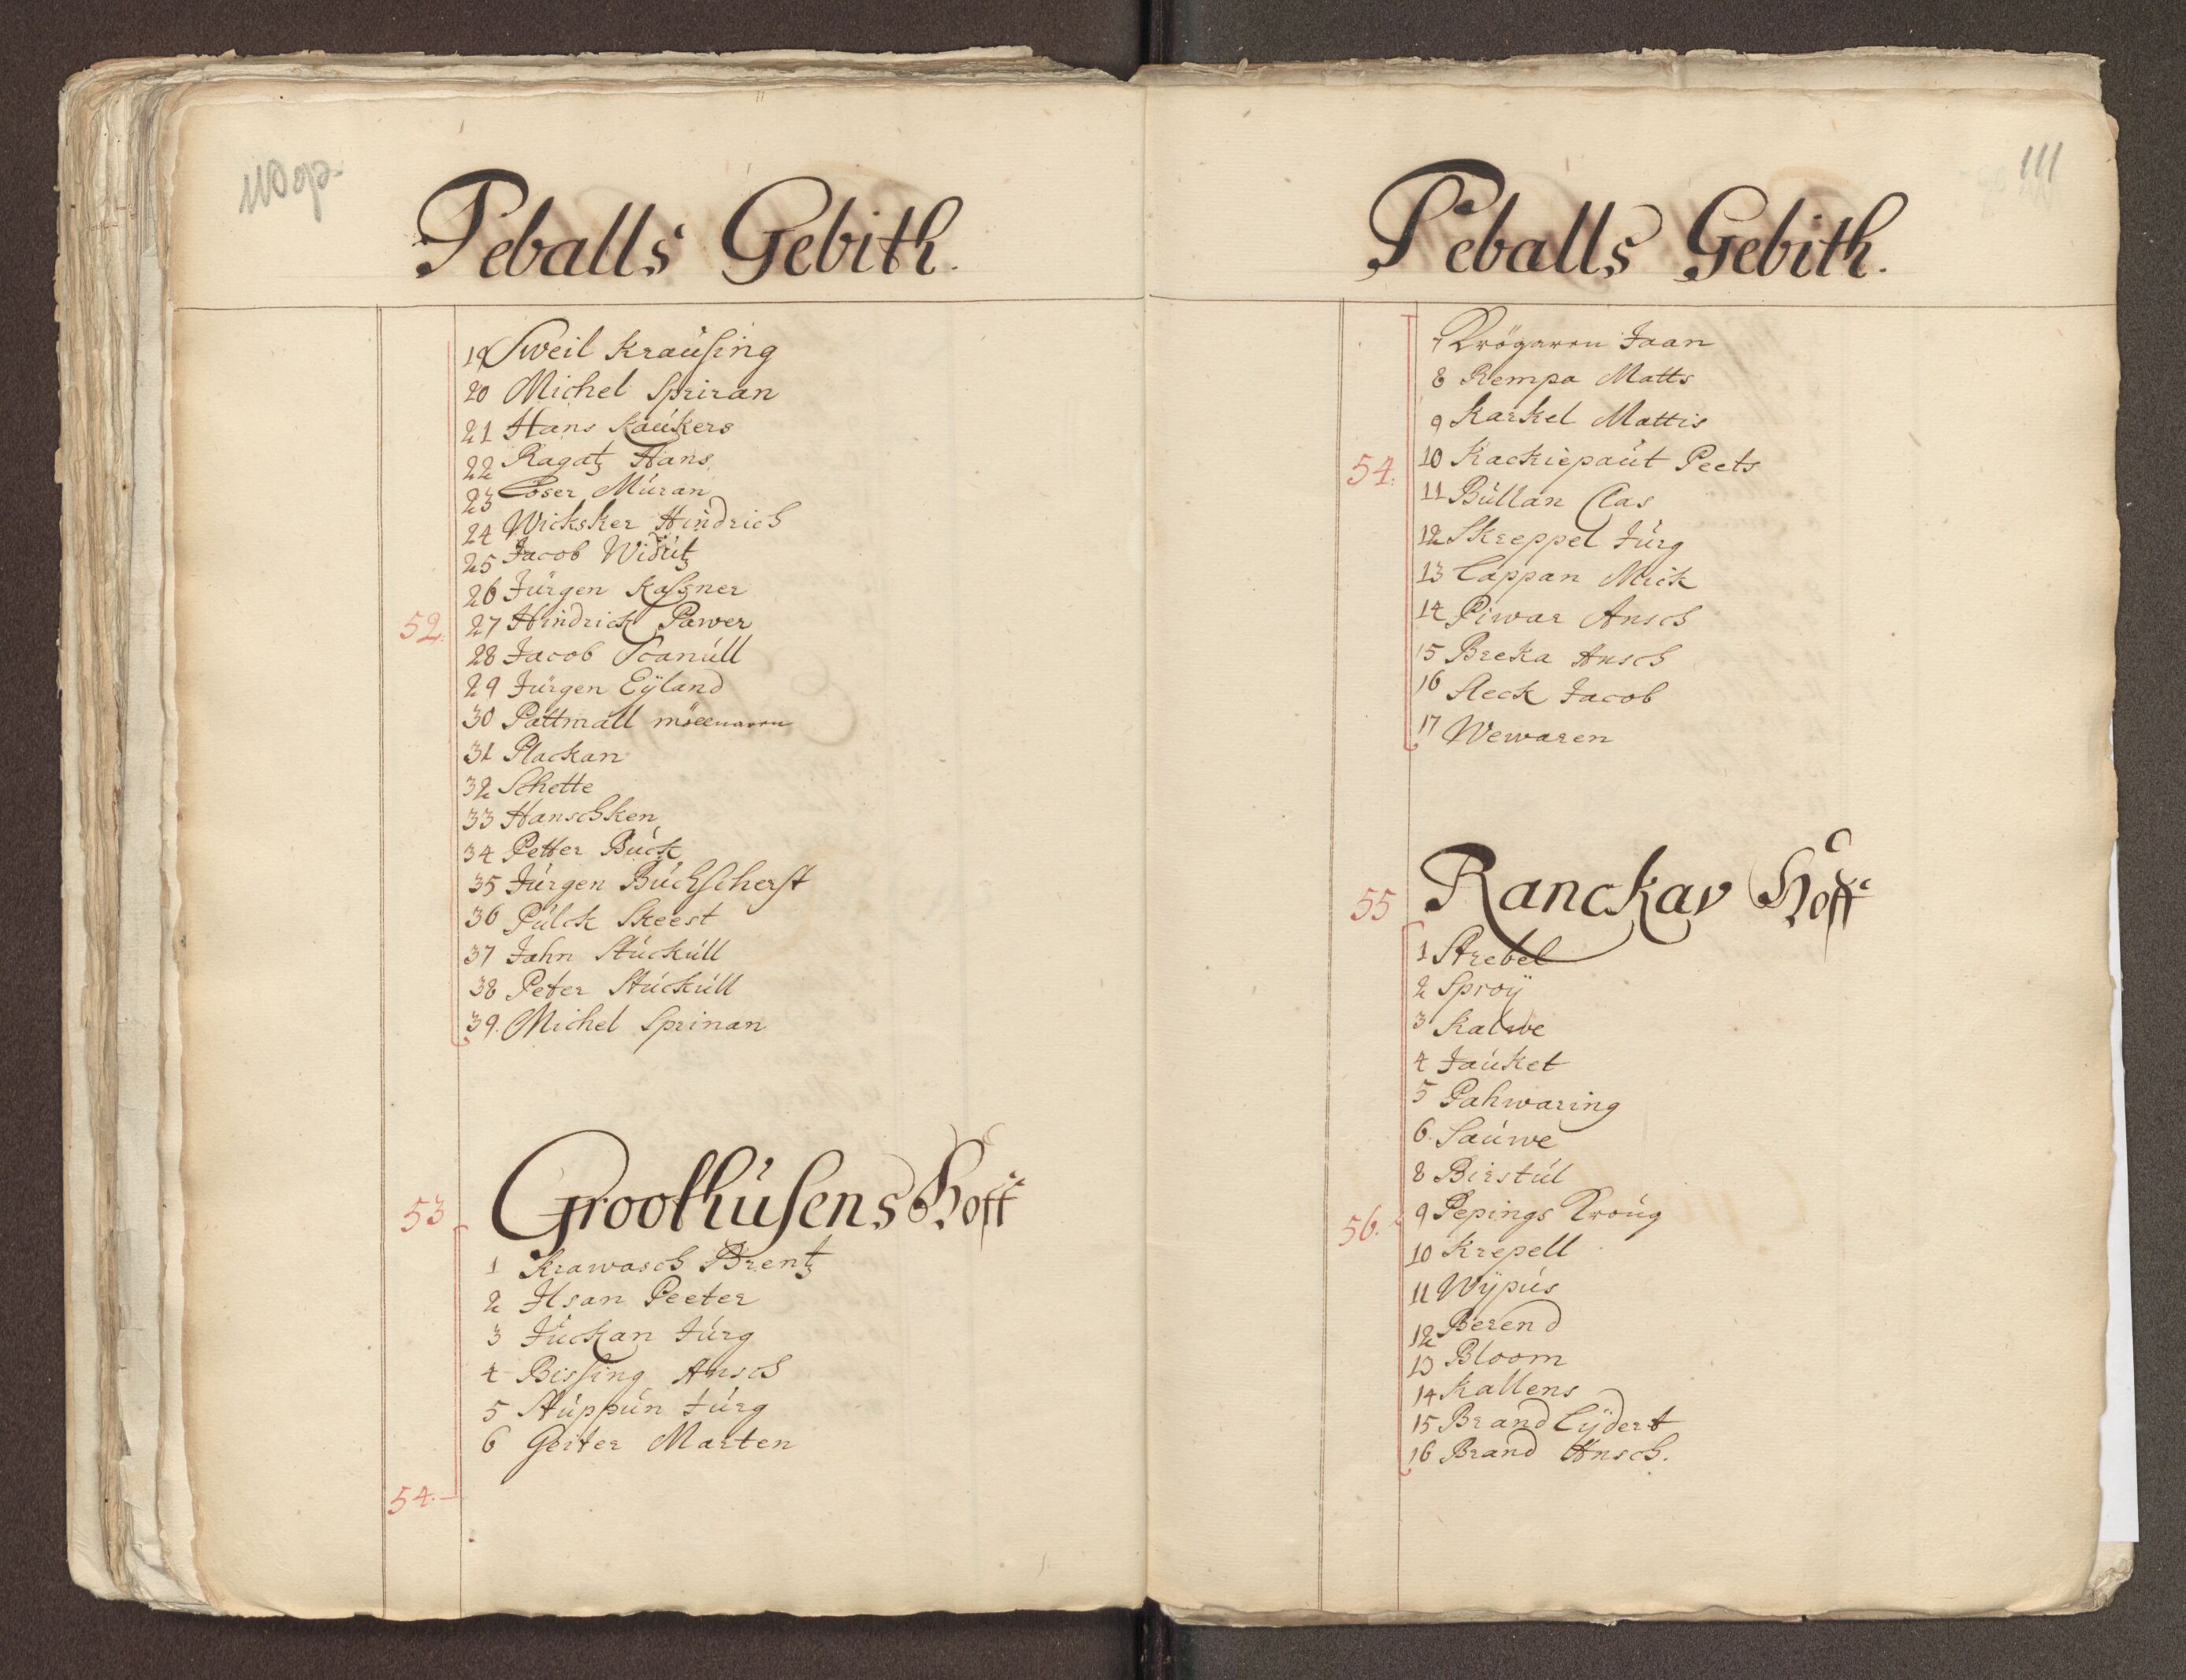 110 op.
Peballs Gebith.
19 Sweil Kraúsing
20 Michel Spriran
21 Hans Kaúkers
22 Ragatz Hans
23 Coser Múran
24 Wicksker Hindrich
25 Jacob Widútz
26 Júrgen Kassner
52. 27 Hindrich Pawer
28 Jacob Scanúll
29 Júrgen Eÿland
30 Pattmall möllnaren
31 Plackan
32 Schette
33 Hanschken
34 Petter Búck
35 Júrgen Búchscherst
36 Púlck Skeest
37 Jahn Stúckúll
38 Peter Stúckúll
39. Michel Sprinan
53 Groothúsens Hoff
1 Krawasch Brentz
2 Ilsan Peeter
3 Júckan Júrg
4 Bissing Ansch
5 Stúppún Júrg
6 Geiter Marten
54.
111
Peballs Gebith.
7 Krögaren Jaan
8 Rempa Matts
9 Karkel Mattis
54. 10 Kackiepaút Peets
11 Búllan Clas
12 Skreppel Júrg
13 Cappan Mick
14 Piwar Ansch
15 Breka Ansch
16 Steck Jacob
17 Wewaren
55 Ranckav Hoff
1 Strebel
2 Sproÿ
3 Kalwe
4 Jaúket
5 Pahwaring
6. Saúwe
8 Birstúl
56. 9 Pepings Kroúg
10 Krepell
11 Wÿpús
12 Berend
13 Bloom
14 Kallens
15 Brand Cÿdert
16 Brand Ansch.